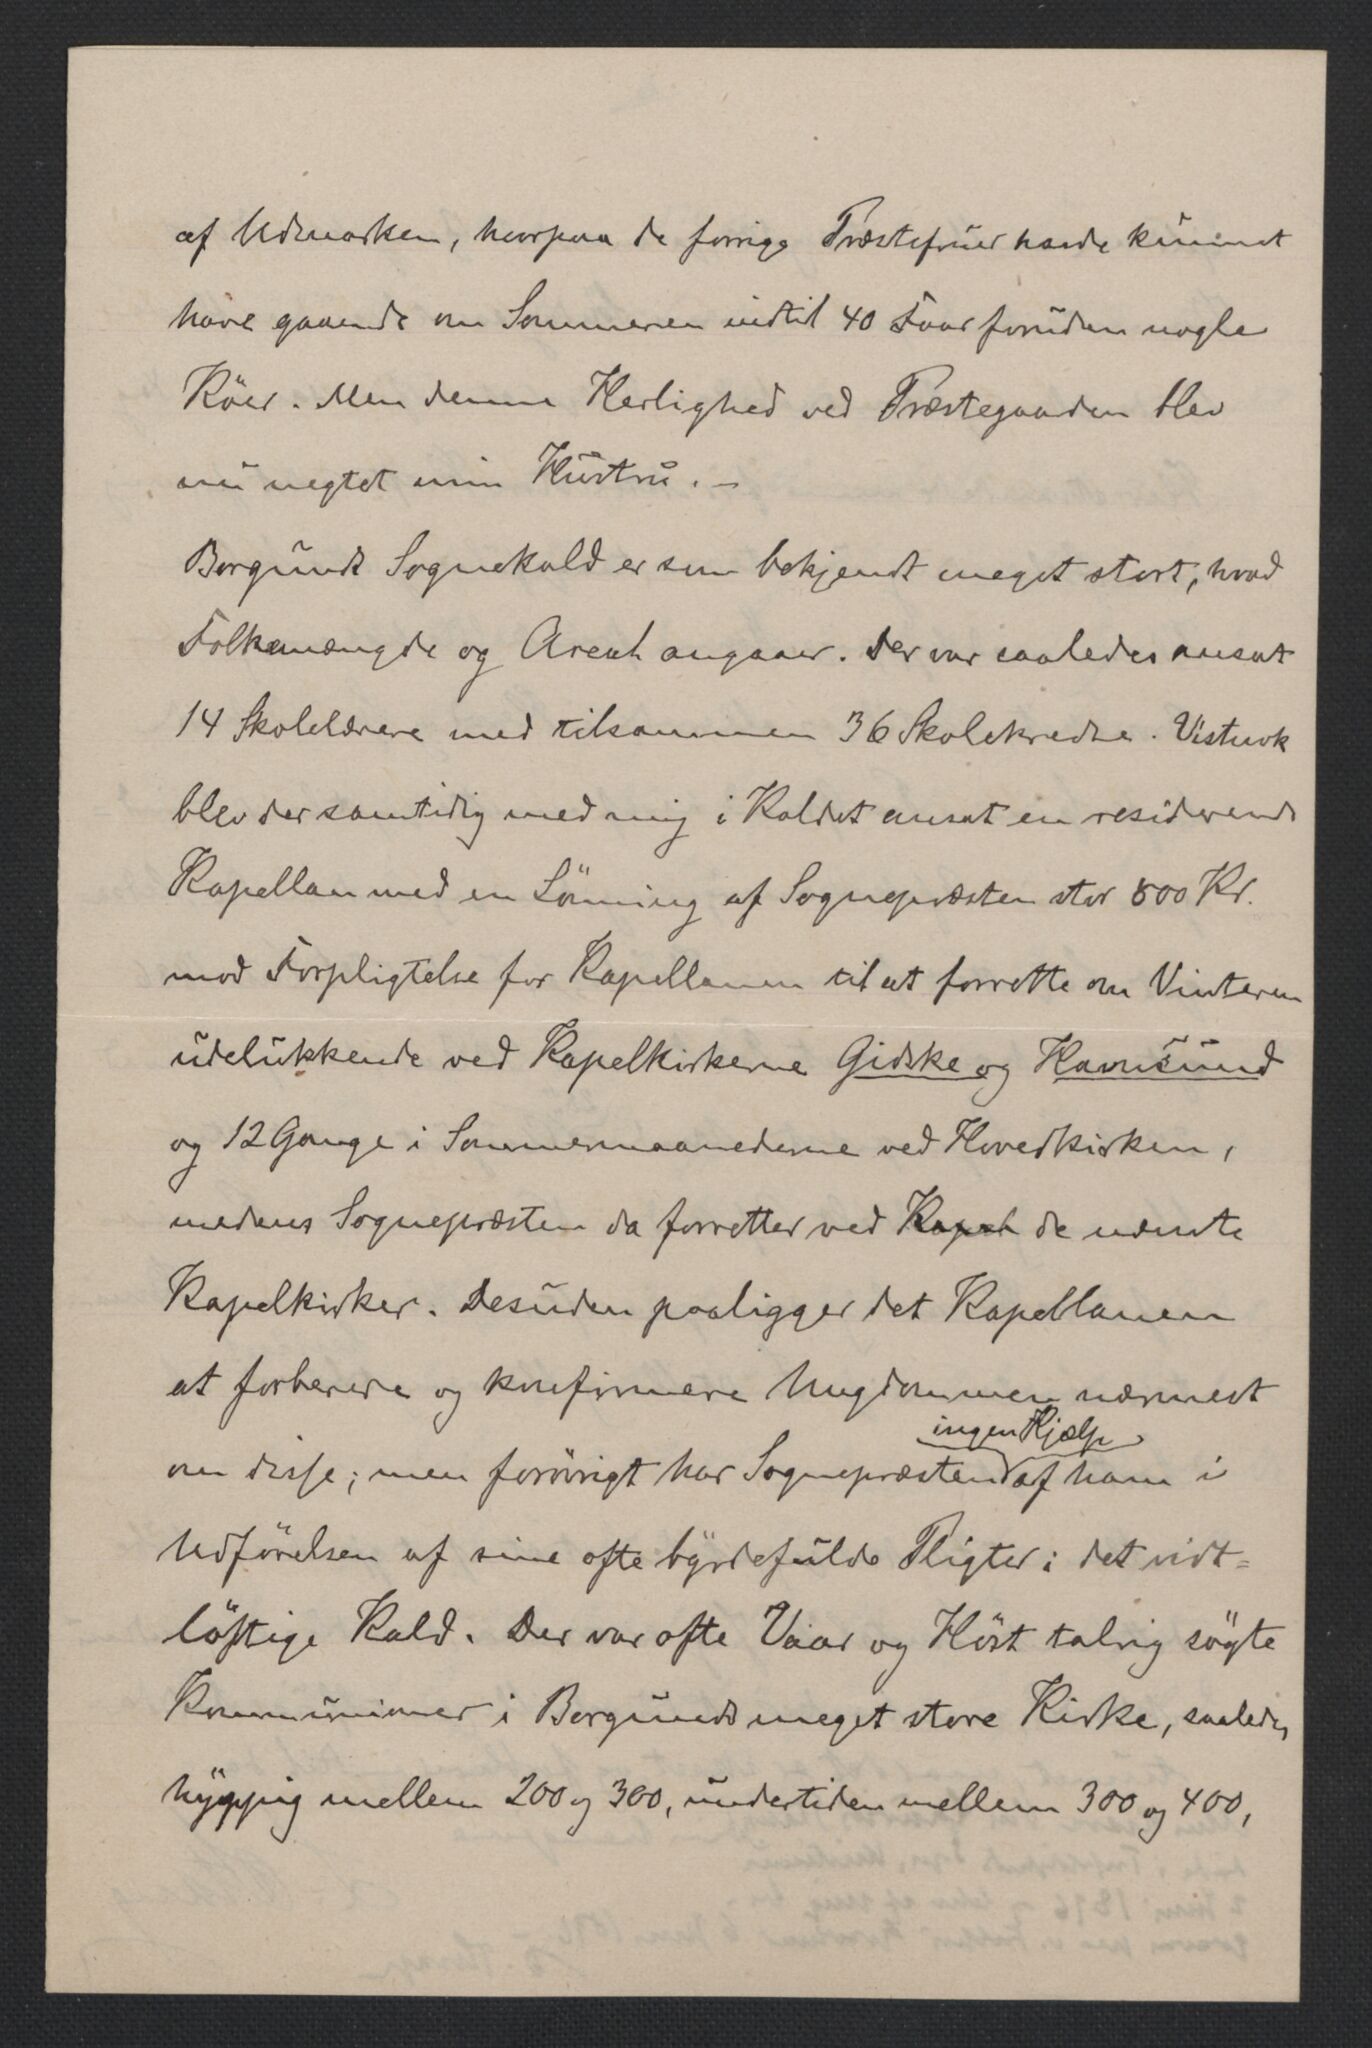 af Udmarken, hvorpaa de forrige Præstefruer havde kunnet
have gaaende om Sommeren indtil 40 Faar foruden nogle
Köer. Men denne Herlighed ved Præstegaarden blev
nu negtet min Hustru. –
Borgunds Sognekald er som bekjendt meget stort, hvad
Folkemængde og Areal angaaer. Der var saaledes ansat
14 Skolelærere med tilsammen 36 Skolekredse. Vistnok
blev der samtidig med mig i Kaldet ansat en residerende
Kapellan med en Lönning af Sognepræsten stor 800 Kr.
mod Forpligtelse for Kapellanen til at forrette om Vinteren
udelukkende ved Kapelkirkerne Gidske og Havnsund
og 12 Gange i Sommermaanederne ved Hovedkirken,
medens Sognepræsten da forretter ved Kapel de nævnte
Kapelkirker. Desuden paaligger det Kapellanen
at forberede og konfirmere Ungdommen nærmest
ingen Hjælp
om disse; men forövrigt har Sognepræsten af ham i
Udförelsen af sine ofte byrdefulde Pligter i det vidt=
löftige Kald. Der var ofte Vaar og Höst talrig sögte
Kommunioner i Borgunds meget store Kirke, saaledes
hyppig mellem 200 og 300, undertiden mellem 300 og 400,